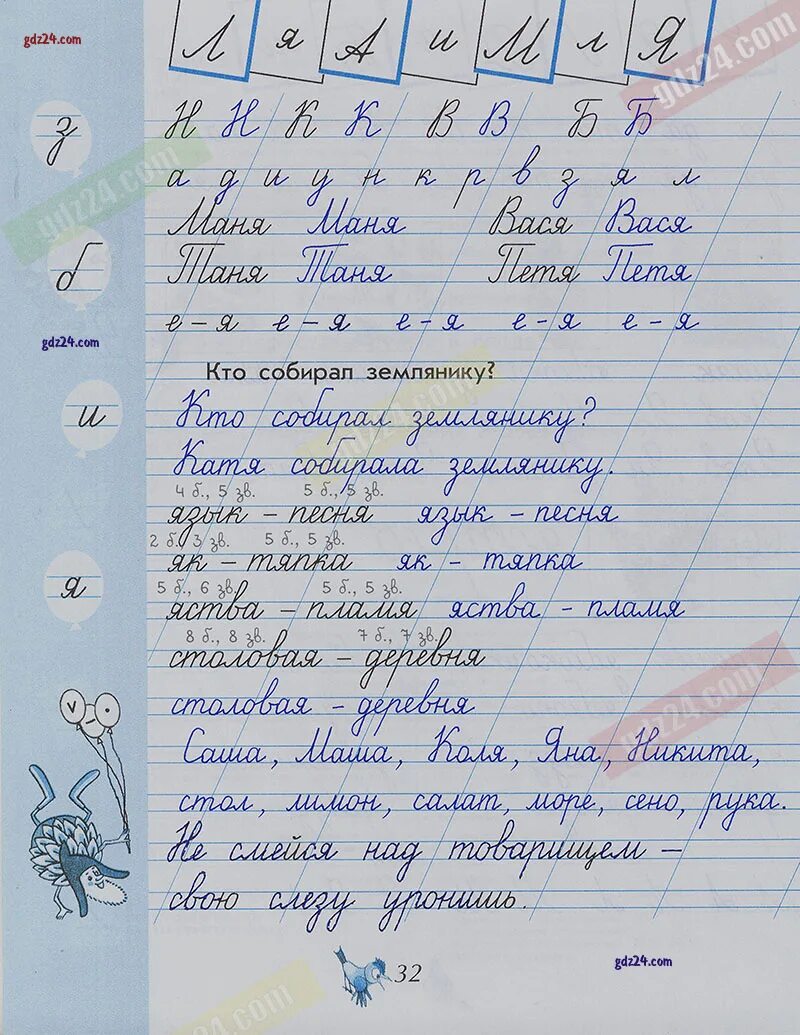 Л я А и М л Я
gdz24.com
gdz24.com
з
Н Н К К В В Б Б
а д и у н к р в з я л
gdz24.com
Маня Маня Вася Вася
б
Таня Таня Петя Петя
е - я е - я е - я е - я е - я
gdz24.com
Кто собирал землянику?
и
Кто собирал землянику?
gdz24.com
Катя собирала землянику.
4 б., 5 зв. 5 б., 5 зв.
язык - песня язык - песня
2 б., 3 зв. 5 б., 5 зв.
як - тяпка як - тяпка
я
5 б., 6 зв. 5 б., 5 зв.
яства - пламя яства - пламя
8 б., 8 зв. 7 б., 7 зв.
столовая - деревня
столовая - деревня
gdz24.com
Саша, Маша, Коля, Яна, Никита,
стол, лимон, салат, море, сено, рука.
Не смейся над товарищем –
свою слезу уронишь.
32
gdz24.com
gdz24.com